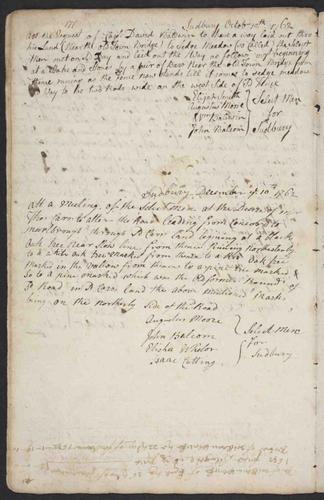 Sudbury Octobr 12th 1762
On the Request of Capt David Baldwin to have a way laid out thro
his land (Near the old Town Bridge) to Sedge Meadow (so Called) the Select
Men met on s Day and laid out the Way as follows viz begining
at a Stake and Stones by a pair of Bars Near the old Town Bridge from
thence runing as the fence now stands till it comes to sedge meadow
s Way to be two Rods wide on the west Side of s fence
Elijah Smith
Augustus Moore
Baldwin
John Balcom
Select Men
for
Sudbury
Sudbury December ye 10th 1762
At a meeting of the Selectmen at the Desire of
Carr to alter the Road Leading from Concord to
Marlborough through s Carr land begining at a Black
oak tree near Stow line from thence Runing Northerly
to a white oak tree marked from thence to a oak tree
marked in the from thence to a pine tree marked
to a pine marked which were the Bounds of
s Road in s Carr land the above mentioned marks
being on the Northerly Side of the Road
Augustus Moore
John Balcom
Elisha Wheler
Isaac Cutting
Select Men
for
Sudbury